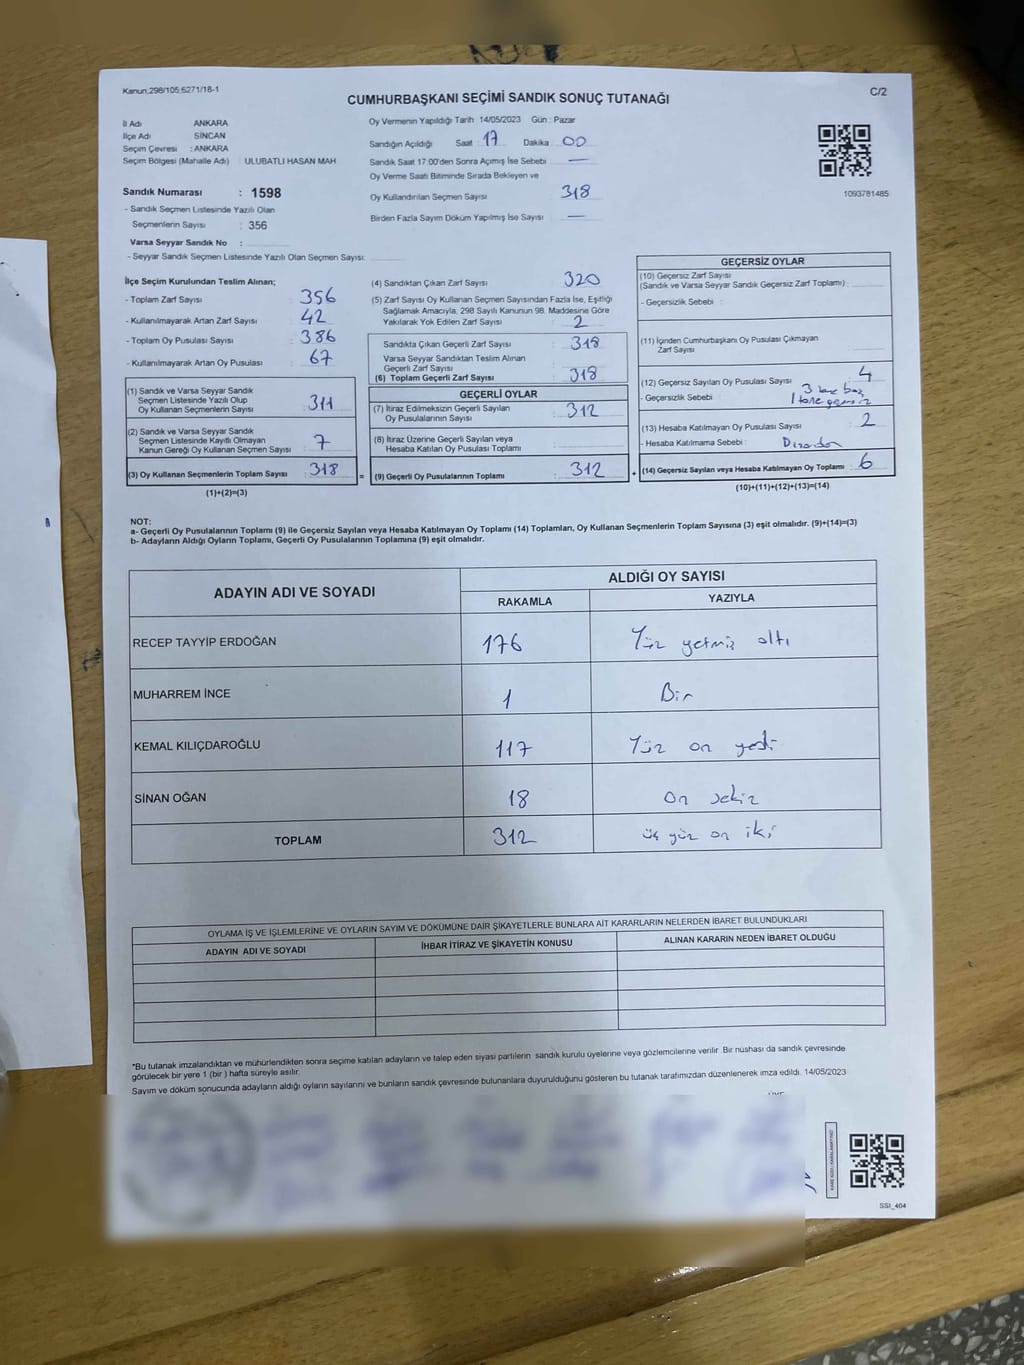 Kanun,298/105,6271/18-1
C/2
CUMHURBAŞKANI SEÇİMİ SANDIK SONUÇ TUTANAĞI
İl Adı ANKARA
İlçe Adı SİNCAN
Seçim Çevresi : ANKARA
Seçim Bölgesi (Mahalle Adı) : ULUBATLI HASAN MAH
Sandık Numarası : 1598
- Sandık Seçmen Listesinde Yazılı Olan
Seçmenlerin Sayısı : 356
Varsa Seyyar Sandık No :
- Seyyar Sandık Seçmen Listesinde Yazılı Olan Seçmen Sayısı:
Oy Vermenin Yapıldığı Tarih 14/05/2023 Gün : Pazar
Sandığın Açıldığı Saat 17 Dakika 00
Sandık Saat 17:00'den Sonra Açımış İse Sebebi —
Oy Verme Saati Bitiminde Sırada Bekleyen ve
Oy Kullandırılan Seçmen Sayısı 318
Birden Fazla Sayım Döküm Yapılmış İse Sayısı —
1093781485
İlçe Seçim Kurulundan Teslim Alınan;
- Toplam Zarf Sayısı : 356
- Kullanılmayarak Artan Zarf Sayısı : 42
- Toplam Oy Pusulası Sayısı : 386
- Kullanılmayarak Artan Oy Pusulası : 67
(1) Sandık ve Varsa Seyyar Sandık
Seçmen Listesinde Yazılı Olup
Oy Kullanan Seçmenlerin Sayısı : 311
(2) Sandık ve Varsa Seyyar Sandık
Seçmen Listesinde Kayıtlı Olmayan
Kanun Gereği Oy Kullanan Seçmen Sayısı : 7
(3) Oy Kullanan Seçmenlerin Toplam Sayısı : 318
(1)+(2)=(3)
=
(4) Sandıktan Çıkan Zarf Sayısı : 320
(5) Zarf Sayısı Oy Kullanan Seçmen Sayısından Fazla İse, Eşitliği
Sağlamak Amacıyla, 298 Sayılı Kanunun 98. Maddesine Göre
Yakılarak Yok Edilen Zarf Sayısı : 2
Sandıkta Çıkan Geçerli Zarf Sayısı : 318
Varsa Seyyar Sandıktan Teslim Alınan
Geçerli Zarf Sayısı :
(6) Toplam Geçerli Zarf Sayısı : 318
GEÇERLİ OYLAR
(7) İtiraz Edilmeksizin Geçerli Sayılan
Oy Pusulalarının Sayısı : 312
(8) İtiraz Üzerine Geçerli Sayılan veya
Hesaba Katılan Oy Pusulası Toplamı :
(9) Geçerli Oy Pusulalarının Toplamı : 312
+
GEÇERSİZ OYLAR
(10) Geçersiz Zarf Sayısı
(Sandık ve Varsa Seyyar Sandık Geçersiz Zarf Toplamı) :
- Geçersizlik Sebebi :
(11) İçinden Cumhurbaşkanı Oy Pusulası Çıkmayan
Zarf Sayısı :
(12) Geçersiz Sayılan Oy Pusulası Sayısı : 4
- Geçersizlik Sebebi : 3 tane boş
1 tane geçersiz
(13) Hesaba Katılmayan Oy Pusulası Sayısı : 2
- Hesaba Katılmama Sebebi :
(14) Geçersiz Sayılan veya Hesaba Katılmayan Oy Toplamı : 6
(10)+(11)+(12)+(13)=(14)
NOT:
a- Geçerli Oy Pusulalarının Toplamı (9) ile Geçersiz Sayılan veya Hesaba Katılmayan Oy Toplamı (14) Toplamları, Oy Kullanan Seçmenlerin Toplam Sayısına (3) eşit olmalıdır. (9)+(14)=(3)
b- Adayların Aldığı Oyların Toplamı, Geçerli Oy Pusulalarının Toplamına (9) eşit olmalıdır.
ADAYIN ADI VE SOYADI
ALDIĞI OY SAYISI
RAKAMLA YAZIYLA
RECEP TAYYİP ERDOĞAN 176 Yüz yetmiş altı
MUHARREM İNCE 1 Bir
KEMAL KILIÇDAROĞLU 117 Yüz on yedi
SİNAN OĞAN 18 On sekiz
TOPLAM 312 üç yüz on iki
OYLAMA İŞ VE İŞLEMLERİNE VE OYLARIN SAYIM VE DÖKÜMÜNE DAİR ŞİKAYETLERLE BUNLARA AİT KARARLARIN NELERDEN İBARET BULUNDUKLARI
ADAYIN ADI VE SOYADI İHBAR İTİRAZ VE ŞİKAYETİN KONUSU ALINAN KARARIN NEDEN İBARET OLDUĞU
*Bu tutanak imzalandıktan ve mühürlendikten sonra seçime katılan adayların ve talep eden siyasi partilerin sandık kurulu üyelerine veya gözlemcilerine verilir. Bir nüshası da sandık çevresinde
görülecek bir yere 1 (bir ) hafta süreyle asılır.
Sayım ve döküm sonucunda adayların aldığı oyların sayılarını ve bunların sandık çevresinde bulunanlara duyurulduğunu gösteren bu tutanak tarafımızdan düzenlenerek imza edildi. 14/05/2023
SSI_404